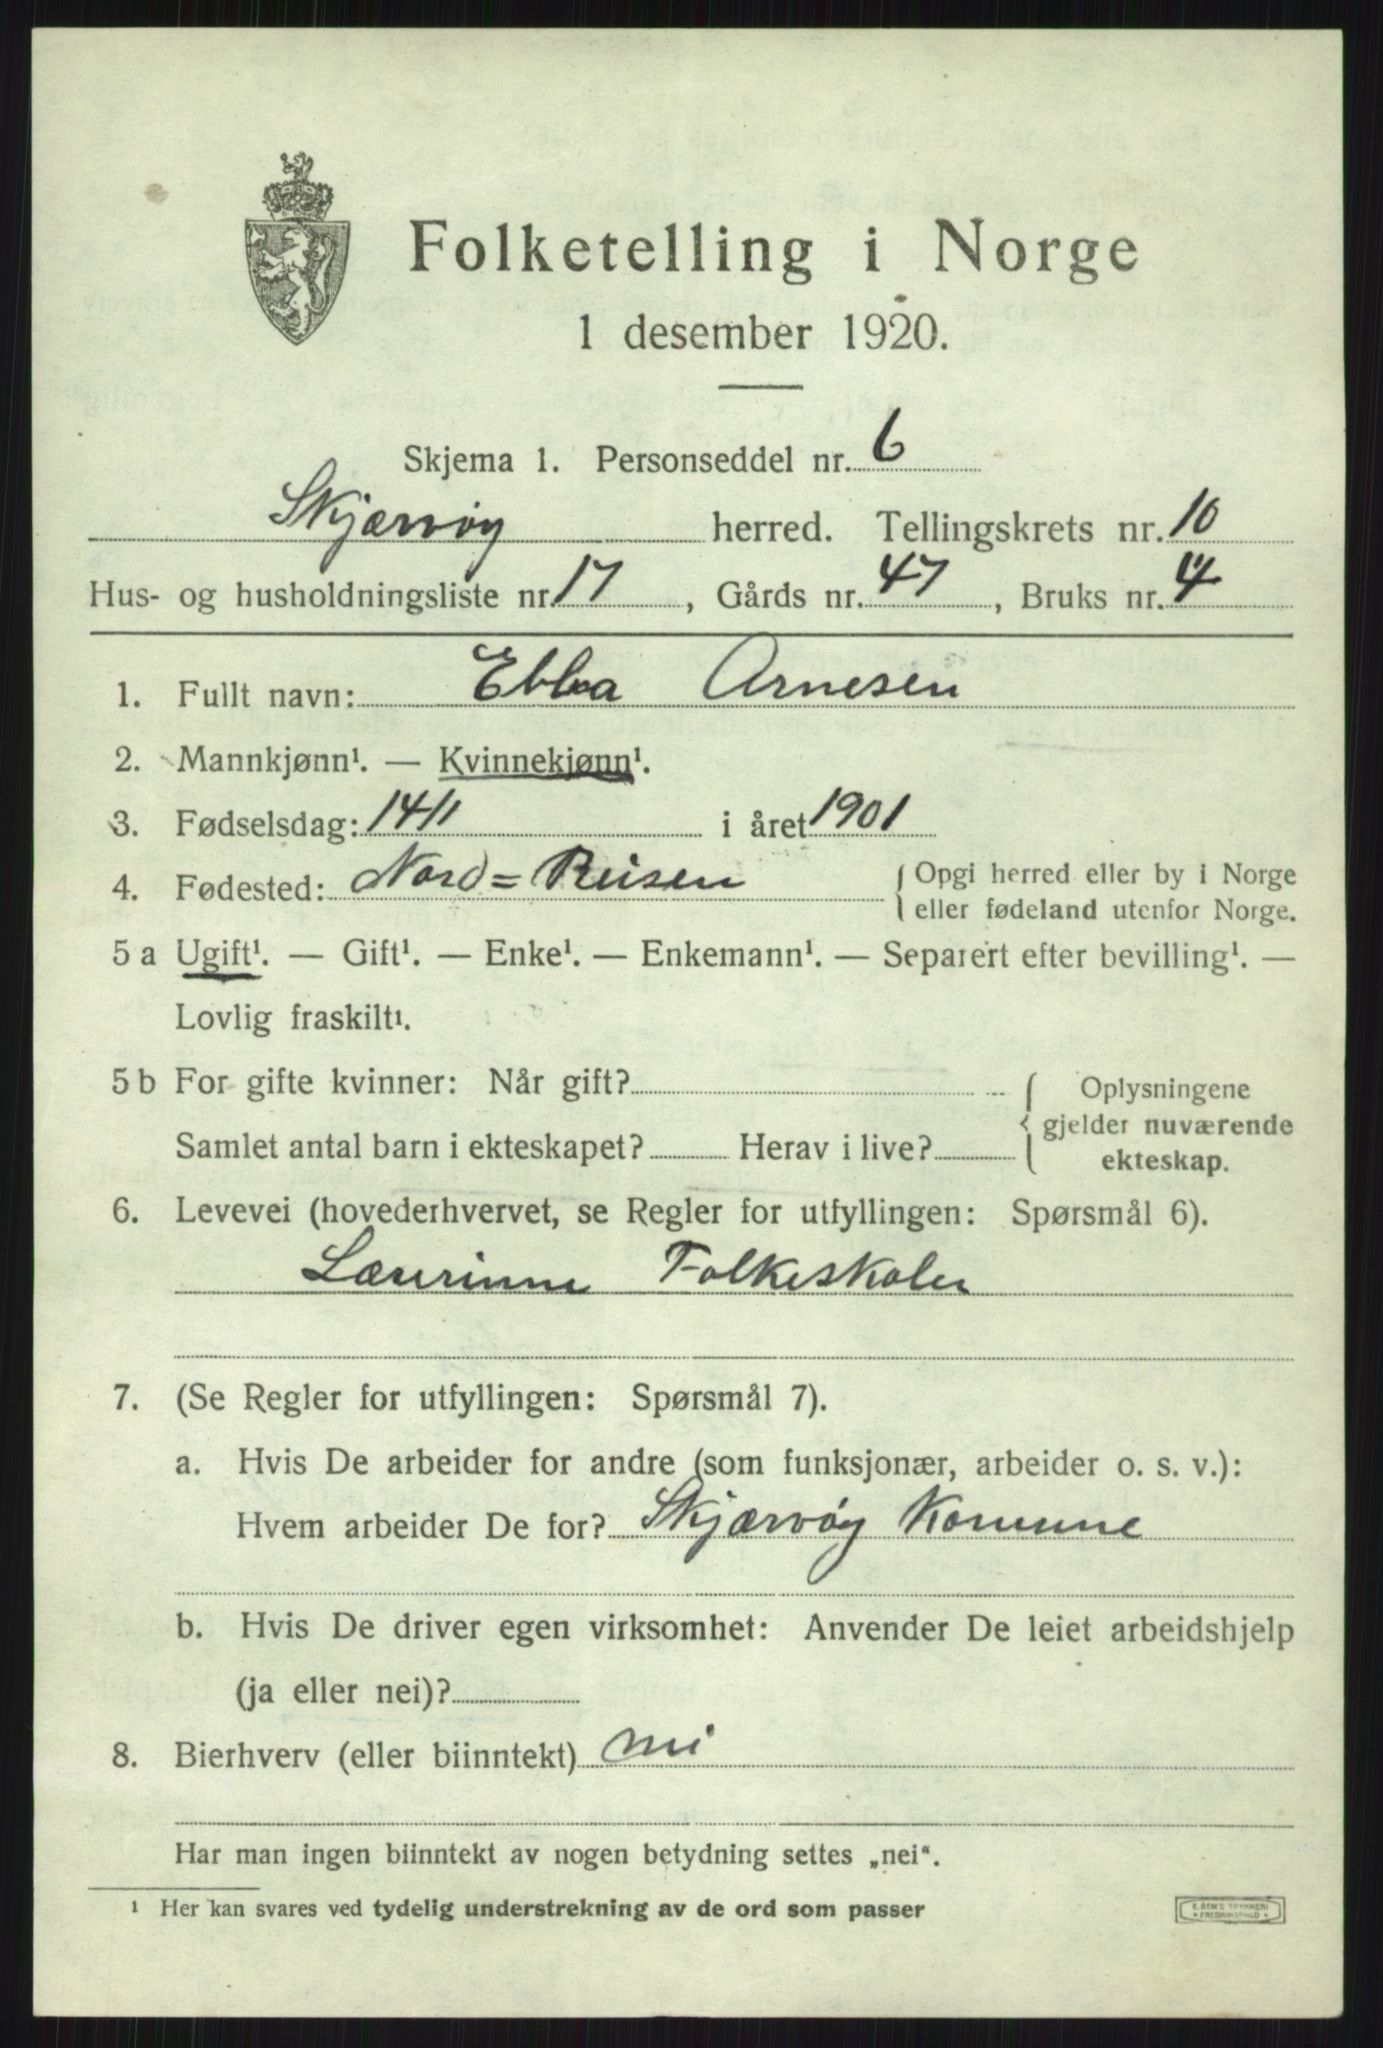 Folketelling i Norge
1 desember 1920.
Skjema 1. Personseddel nr. 6
Skjærvøy herred. Tellingskrets nr. 10
Hus- og husholdningsliste nr. 17, Gårds nr. 47, Bruks nr. 4
1. Fullt navn: Ebba Arnesen
2. Mannkjønn¹. — Kvinnekjønn¹.
3. Fødselsdag: 14/11 i året 1901
4. Fødested: Nord=Reisen { Opgi herred eller by i Norge
eller fødeland utenfor Norge.
5 a Ugift¹. — Gift¹. — Enke¹. — Enkemann¹. — Separert efter bevilling¹. —
Lovlig fraskilt¹.
5 b For gifte kvinner: Når gift? { Oplysningene
gjelder nuværende
Samlet antal barn i ekteskapet? Herav i live?
ekteskap.
6. Levevei (hovederhvervet, se Regler for utfyllingen: Spørsmål 6).
Lærerinne Folkeskolen
7. (Se Regler for utfyllingen: Spørsmål 7).
a. Hvis De arbeider for andre (som funksjonær, arbeider o. s. v.):
Hvem arbeider De for? Skjærvøy Komune
b. Hvis De driver egen virksomhet: Anvender De leiet arbeidshjelp
(ja eller nei)?
8. Bierhverv (eller biinntekt) nei
Har man ingen biinntekt av nogen betydning settes „nei“.
¹ Her kan svares ved tydelig understrekning av de ord som passer
E. SEM'S TRYKKERI
FREDRIKSHALD